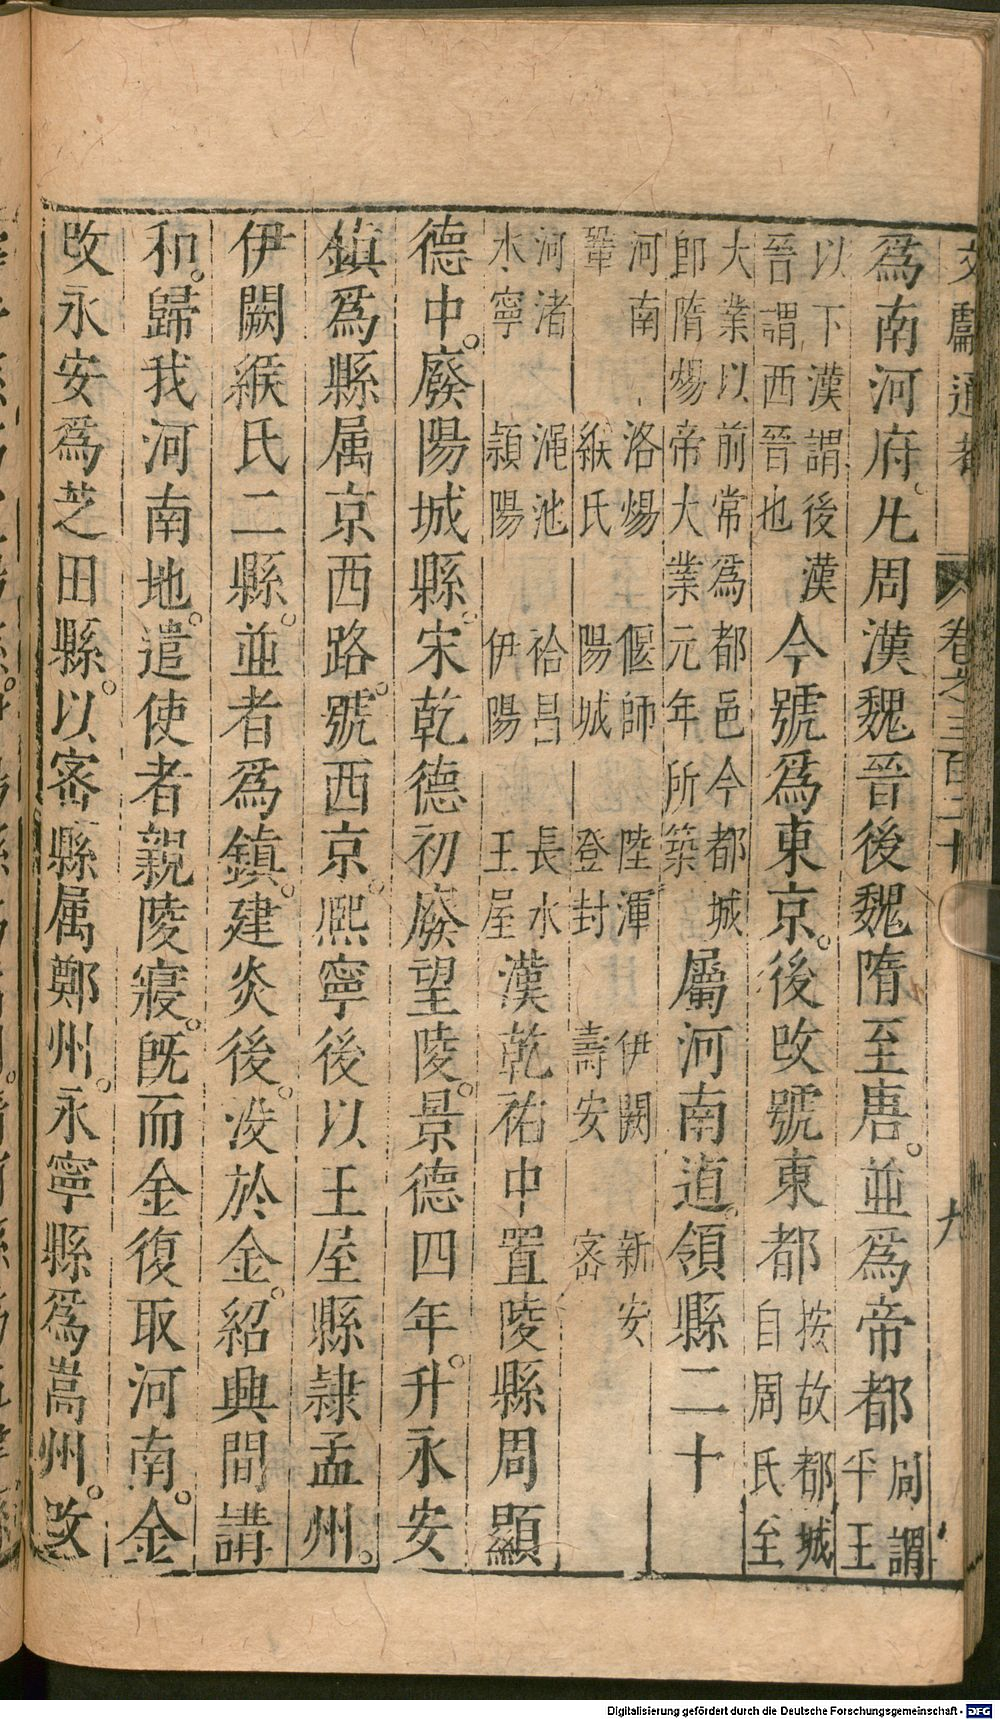 文獻通考 卷之三百二十 九
爲南河府。凡周漢魏晉後魏隋至唐。並爲帝都周謂平王
以下漢謂後漢晉謂西晉也今號爲東京。後改號東都按故都城自周氏至
大業以前常爲都邑今都城即隋煬帝大業元年所築屬河南道。領縣二十
河南 洛煬 偃師 陸渾 伊闕 新安 鞏 緱氏 陽城 登封 壽安 密
河渚 澠池 祫昌 長水 水寧 潁陽 伊陽 王屋漢乾祐中置陵縣周顯
德中。廢陽城縣。宋乾德初廢望陵。景德四年。升永安
鎮爲縣属京西路。號西京。熙寧後以王屋縣隷孟州。
伊闕緱氏二縣。並者爲鎮。建炎後。没於金。紹興間講
和。歸我河南地。遣使者親陵寢。旣而金復取河南。金
改永安爲芝田縣。以密縣属鄭州。永寧縣爲嵩州。改
Digitalisierung gefördert durch die Deutsche Forschungsgemeinschaft - DFG